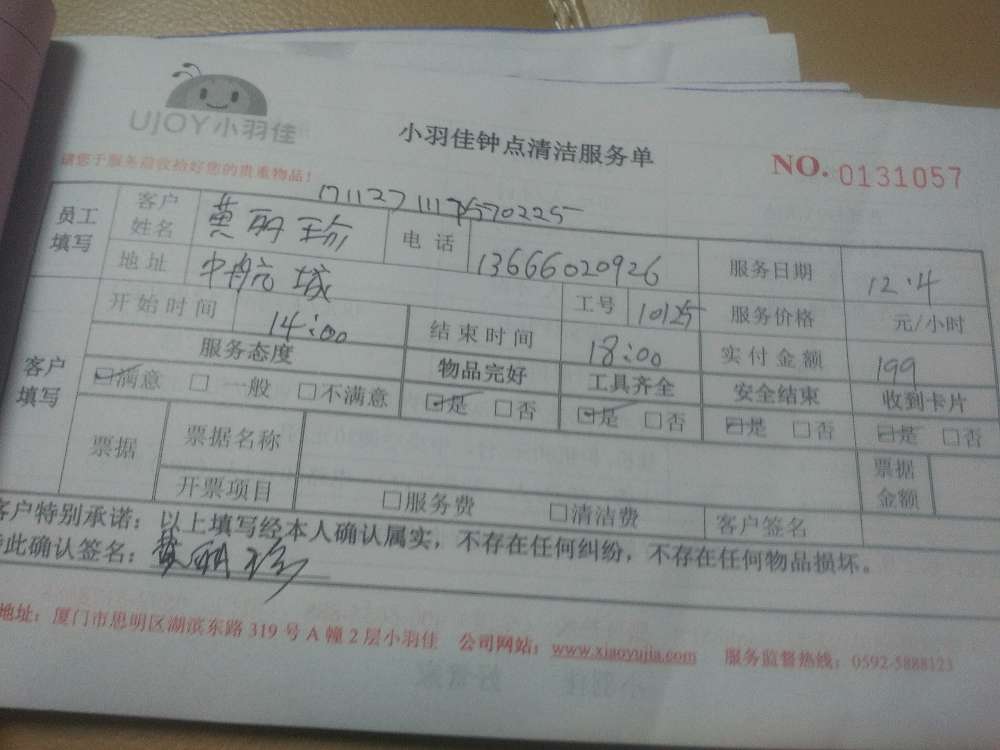 UJOY小羽佳
小羽佳钟点清洁服务单
NO. 0131057
请您于服务前收拾好您的贵重物品!
员工填写 客户姓名 黄丽珍 电话 13666020926 服务日期 12.4
地址 中航城 工号 10125 服务价格 元/小时
客户填写 开始时间 14:00 结束时间 18:00 实付金额 199
服务态度 物品完好 工具齐全 安全结束 收到卡片
☑满意 □一般 □不满意 ☑是 □否 ☑是 □否 ☑是 □否 ☑是 □否
票据 票据名称 票据金额
开票项目 □服务费 □清洁费 客户签名
客户特别承诺:以上填写经本人确认属实,不存在任何纠纷,不存在任何物品损坏。
特此确认签名:黄丽珍
地址:厦门市思明区湖滨东路319号A幢2层小羽佳 公司网站:www.xiaoyujia.com 服务监督热线:0592-5888123